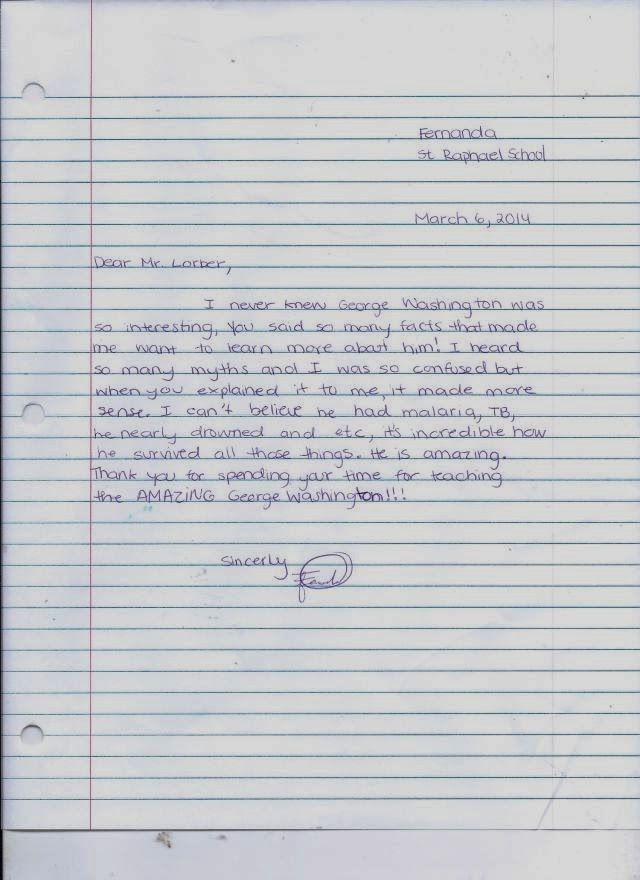 Fernanda
St Raphael School
March 6, 2014
Dear Mr. Lorber,
I never knew George Washington was
so interesting, You said so many facts that made
me want to learn more about him! I heard
so many myths and I was so confused but
when you explained it to me, it made more
sense. I can't believe he had malaria, TB,
he nearly drowned and etc, it's incredible how
he survived all those things. He is amazing.
Thank you for spending your time for teaching
the AMAZING George Washington!!!
Sincerly